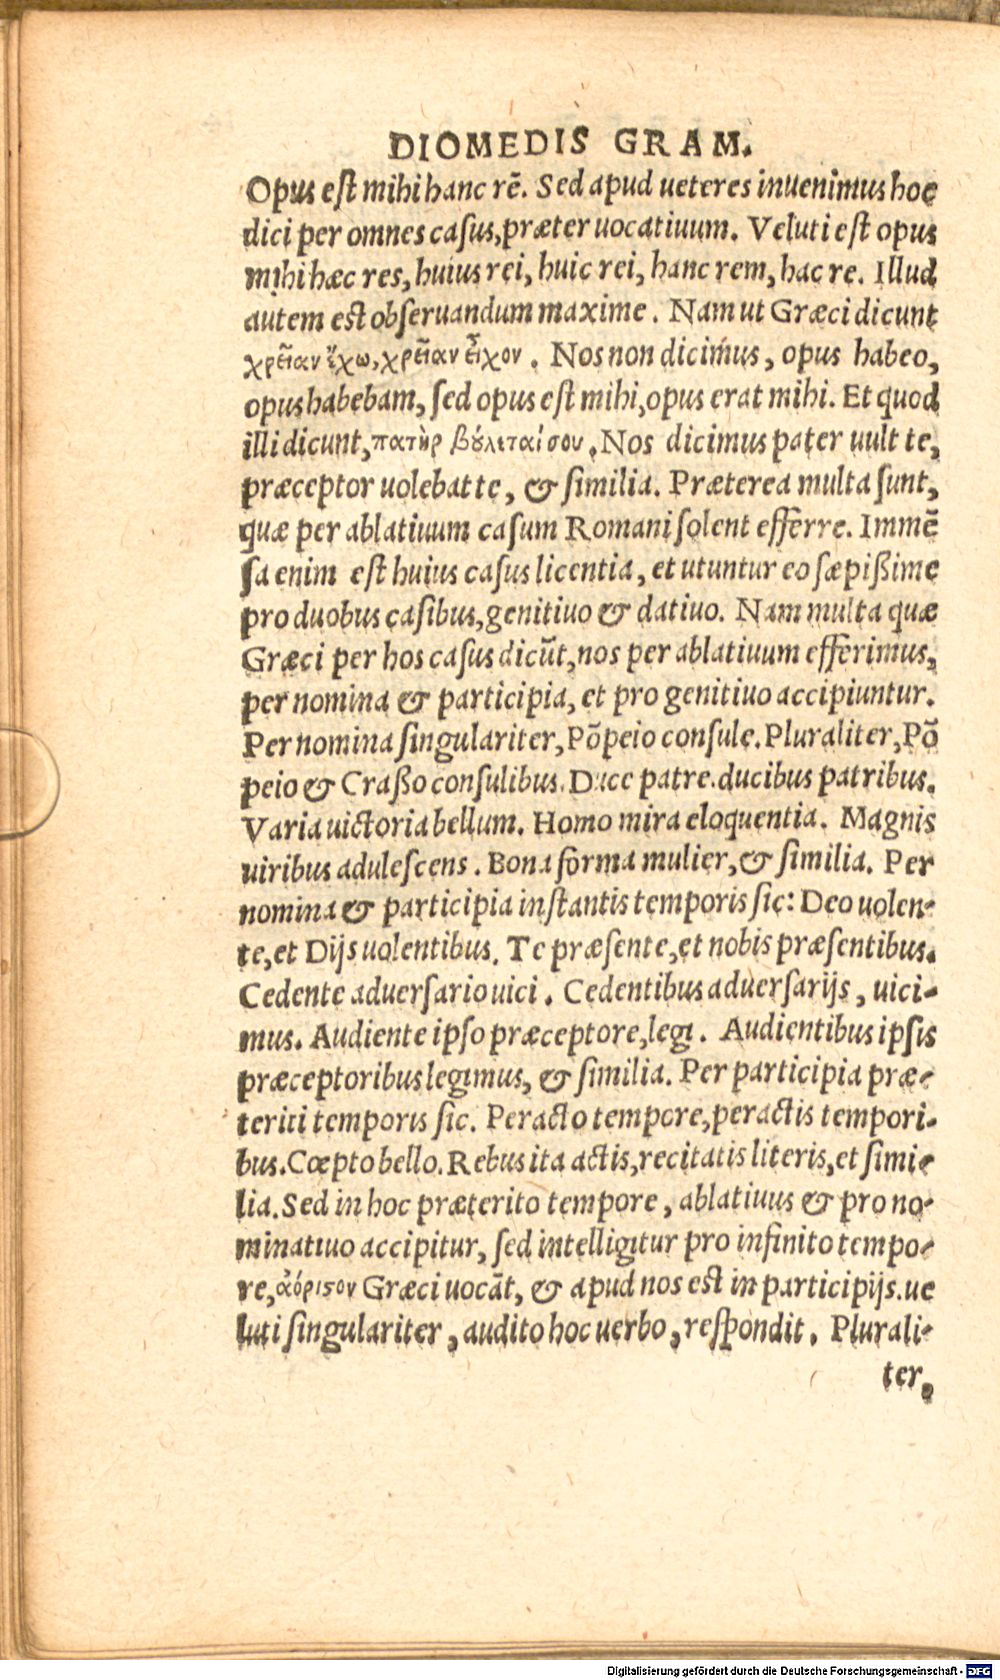 DIOMEDIS GRAM.
Opus est mihi hanc rẽ. Sed apud ueteres inuenimus hoc
dici per omnes casus, præter uocatiuum. Veluti est opus
mihi hæc res, huius rei, huic rei, hanc rem, hac re. Illud
autem est obseruandum maxime. Nam ut Græci dicunt
χρείαν ἔχω, χρείαν εἶχον. Nos non dicimus, opus habeo,
opus habebam, sed opus est mihi, opus erat mihi. Et quod
illi dicunt, πατὴρ βούλεταί σου, Nos dicimus pater uult te,
præceptor uolebat te, & similia. Præterea multa sunt,
quæ per ablatiuum casum Romani solent efferre. Immẽ
sa enim est huius casus licentia, et utuntur eo sæpißime
pro duobus casibus, genitiuo & datiuo. Nam multa quæ
Græci per hos casus dicũt, nos per ablatiuum efferimus,
per nomina & participia, et pro genitiuo accipiuntur.
Per nomina singulariter, Põpeio consule. Pluraliter, Põ
peio & Craßo consulibus. Duce patre. ducibus patribus.
Varia uictoria bellum. Homo mira eloquentia. Magnis
uiribus adulescens. Bona forma mulier, & similia. Per
nomina & participia instantis temporis sic: Deo uolen-
te, et Dijs uolentibus. Te præsente, et nobis præsentibus.
Cedente aduersario uici. Cedentibus aduersarijs, uici-
mus. Audiente ipso præceptore, legi. Audientibus ipsis
præceptoribus legimus, & similia. Per participia præ-
teriti temporis sic. Peracto tempore, peractis tempori-
bus. Cœpto bello. Rebus ita actis, recitatis literis, et simi-
lia. Sed in hoc præterito tempore, ablatiuus & pro no-
minatiuo accipitur, sed intelligitur pro infinito tempo-
re, ἀόριστον Græci uocãt, & apud nos est in participijs. ue
luti singulariter, audito hoc uerbo, respondit. Plurali-
ter,
Digitalisierung gefördert durch die Deutsche Forschungsgemeinschaft - DFG